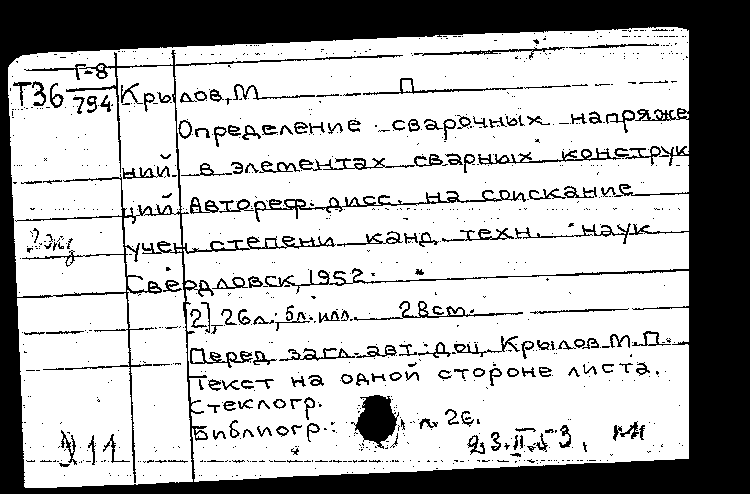 Г-8
Т36 794 Крылов, М П
Определение сварочных напряже
ний в элементах сварных конструк
ций. Автореф. дисс. на соискание
2 экз учен. степени канд. техн. наук
Свердловск, 1952.
[2], 26л.; бл. илл. 28 см.
Перед загл. авт.: доц. Крылов М.П.
Текст на одной стороне листа.
Стеклогр.
Библиогр.: л. 26.
11 23.II.53.